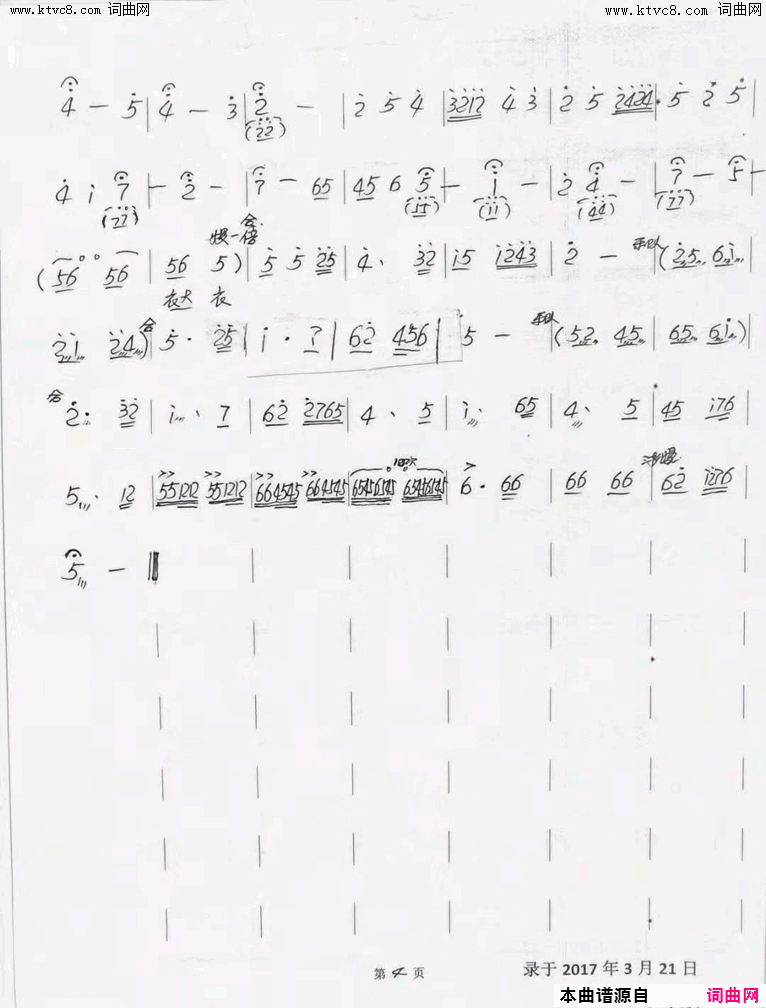 www.ktvc8.com 词曲网 www.ktvc8.com 词曲网
4 — 5 | 4 — 3 | 2 — | 2 5 4 | 3212 4 3 | 2 5 2424 · 5 2 5 |
(22)
4 i 7 | — 2 — | 7 — 65 | 45 6 5 | — 1 — | 2 4 — | 7 — 5 —
(77) (55) (11) (44) (77)
慢一倍 合
(56 56 | 56 5) | 5 5 25 | 4 · 32 | i5 i243 | 2 — | (25 6i |
衣大 衣
2i 24) 合 5 · 25 | i · 7 | 62 456 | 5 — | (52 45 | 65 6i)
合 2 · 32 | i · 7 | 62 2765 | 4 · 5 | i · 65 | 4 · 5 | 45 i76
5 · 12 | 551212 551212 | 664545 664545 | 65456545 65456545 | 6 · 66 | 66 66 | 62 i276
5 —
第 4 页 录于 2017 年 3 月 21 日
本曲谱源自 词曲网